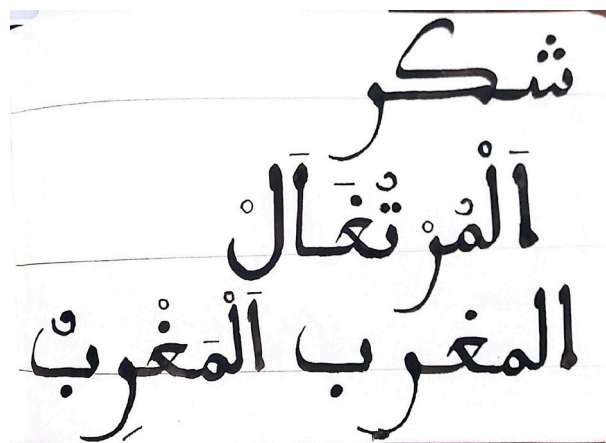 شكر
اَلْمُرْتُغَاَلْ
المغرب اَلْمَغْرِبُ